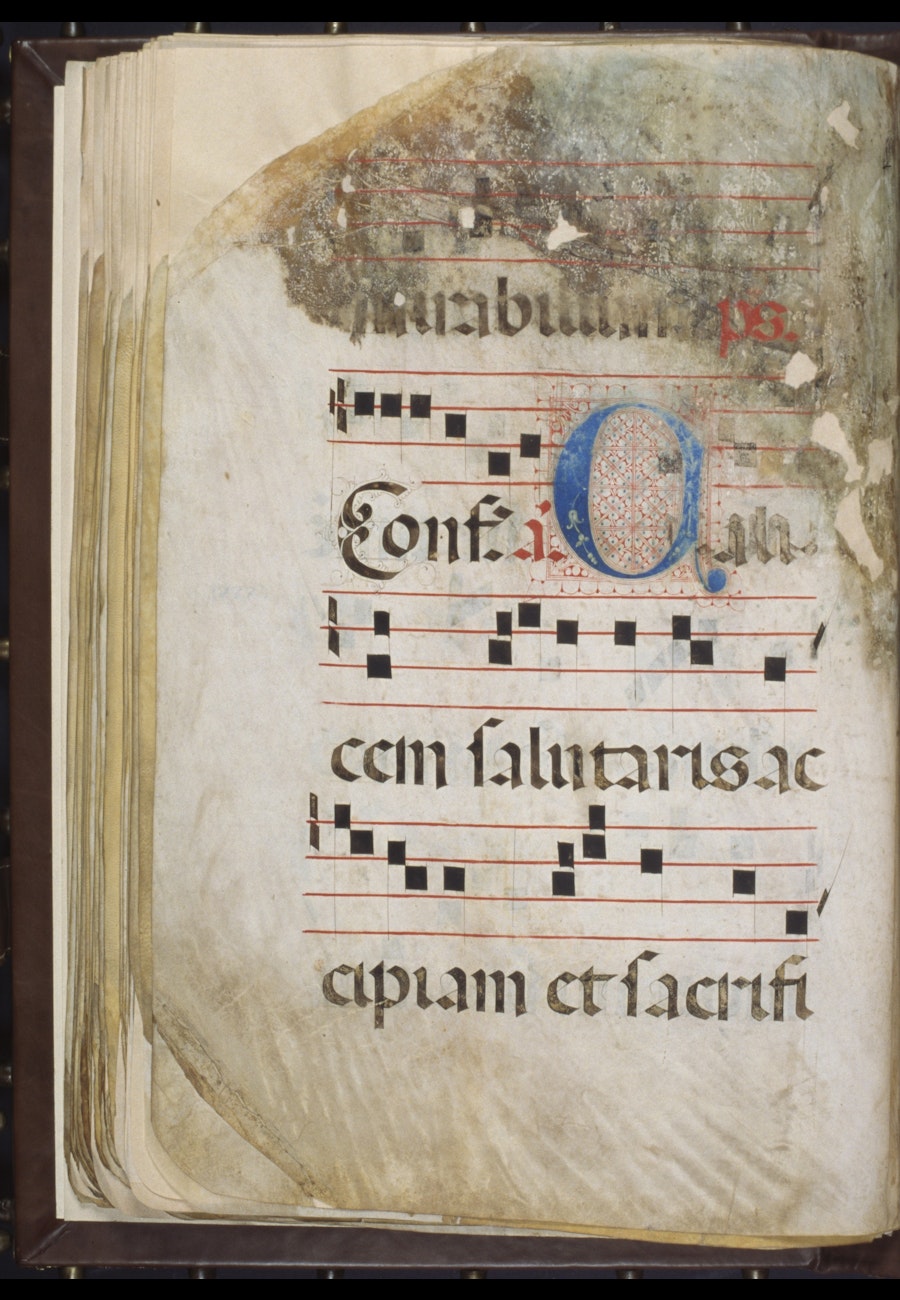 mirabilium ps.
Conf. a. Cali
cem salutaris ac
cipiam et sacrifi